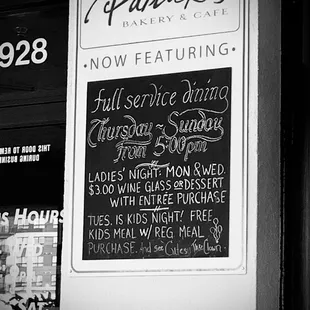 BAKERY & CAFE
·NOW FEATURING·
full service dining
Thursday ~ Sunday
from 5:00pm
LADIES' NIGHT: MON & WED.
$3.00 WINE GLASS OR DESSERT
WITH ENTRÉE PURCHASE
TUES. IS KIDS NIGHT! FREE
KIDS MEAL W/ REG MEAL
PURCHASE. And see Clown.
928
THIS DOOR TO REM
DURING BUSINE
Hours